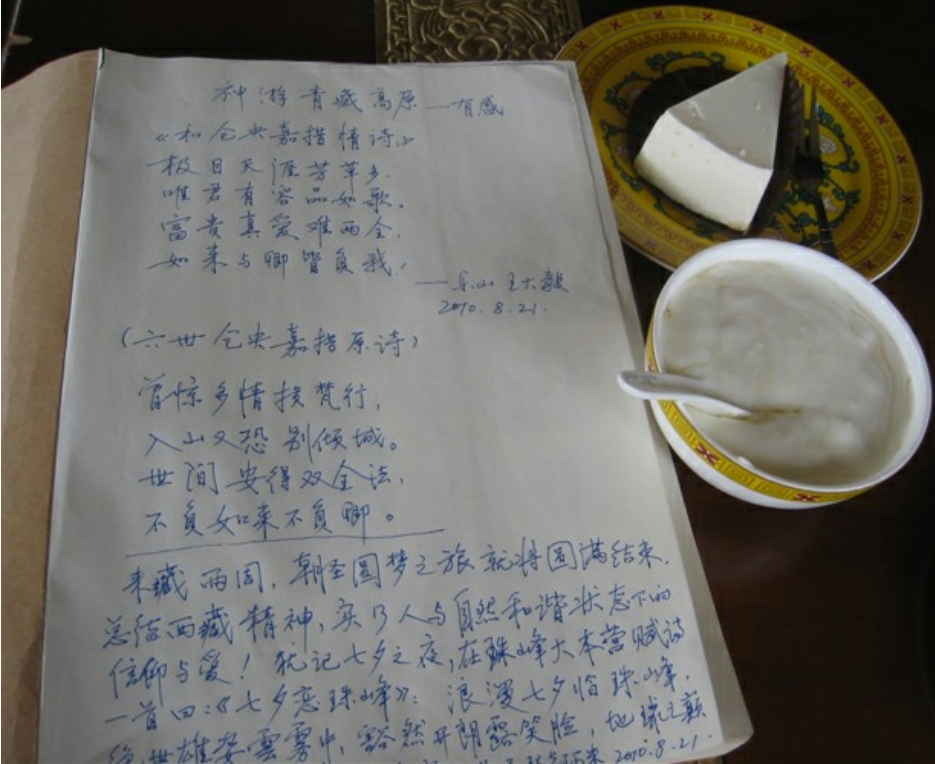 神游青藏高原——有感
《和仓央嘉措情诗》
极目天涯芳草多,
唯君有容品如歌。
富贵真爱难两全,
如来与卿皆负我!
——乐山 王大毅
2010.8.21.
(六世仓央嘉措原诗)
曾惊多情损梵行,
入山又恐别倾城。
世间安得双全法,
不负如来不负卿。
来藏两周,朝圣圆梦之旅就将圆满结束,
总结西藏精神,实乃人与自然和谐状态下的
信仰与爱!犹记七夕之夜,在珠峰大本营赋诗
一首曰:《七夕恋珠峰》:浪漫七夕恰珠峰,
绝世雄姿雲雾中,豁然开朗露笑脸,地球之巅
2010.8.21.